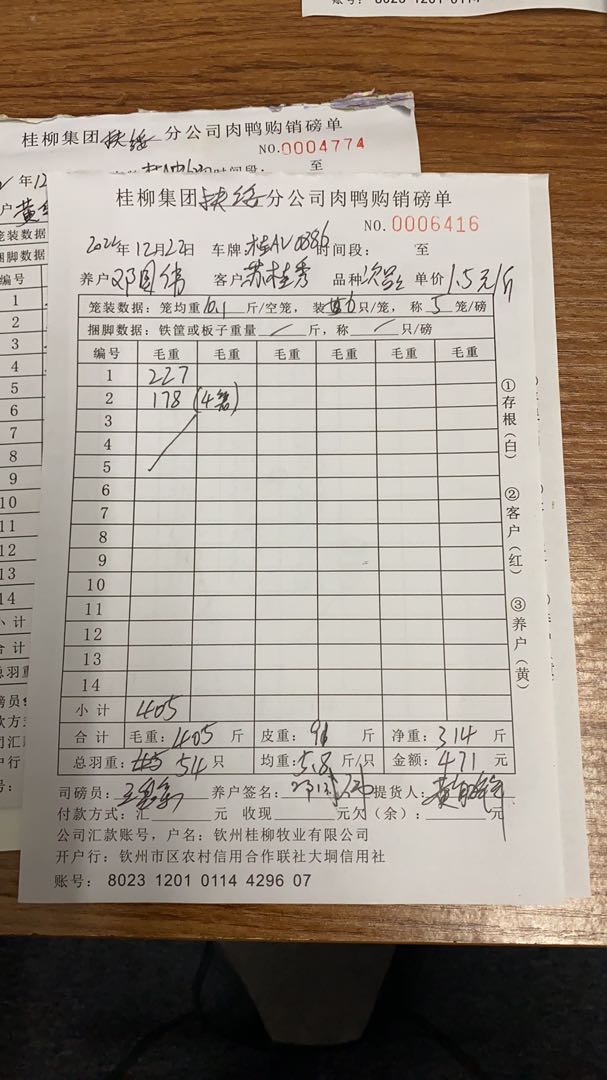 账号: 8023 1201 0114
桂柳集团扶绥分公司肉鸭购销磅单
NO.0004774
时间段: 至
年12
户黄
笼装数据
捆脚数据
编号
1
2
3
4
5
6
7
8
9
10
11
12
13
14
小计
合计
总羽重
桂柳集团扶绥分公司肉鸭购销磅单
NO.0006416
年12月22日 车牌:桂AV0386 时间段: 至
养户 邓国伟 客户 苏桂秀 品种 单价 1.5元/斤
笼装数据: 笼均重 10.1 斤/空笼, 装 6 只/笼, 称 5 笼/磅
捆脚数据: 铁筐或板子重量 / 斤, 称 / 只/磅
编号 毛重 毛重 毛重 毛重 毛重 毛重
1 227
2 178 (4笼)
3
4
5
6
7
8
9
10
11
12
13
14
小计 405
合计 毛重: 405 斤 皮重: 91 斤 净重: 314 斤
总羽重: 54 只 均重: 5.8 斤/只 金额: 471 元
司磅员: 养户签名: 提货人:
付款方式: 汇 元 收现 元欠(余): 元
公司汇款账号, 户名: 钦州桂柳牧业有限公司
开户行: 钦州市区农村信用合作联社大垌信用社
账号: 8023 1201 0114 4296 07
①存根(白)
②客户(红)
③养户(黄)